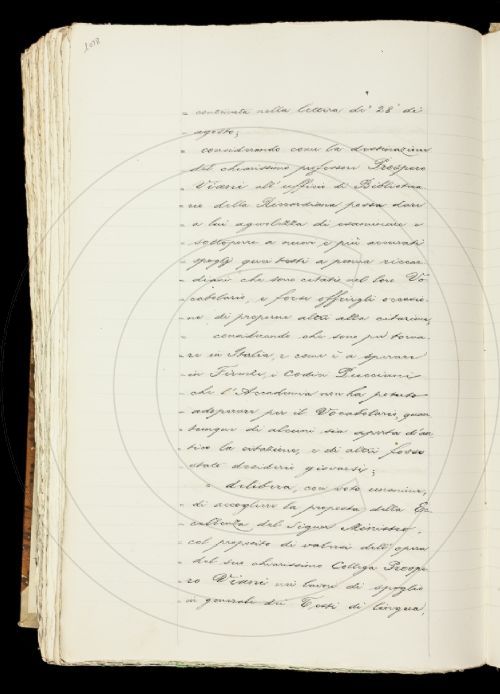 1078
= contenuta nella lettera di' 28 di
= agosto;
= considerando come la destinazione
= del chiarissimo professore Prospero
= Viani all' uffizio di Biblioteca
= rio della Riccardiana possa dare
= a lui agevolezza di esaminare e
= sottoporre a nuovi e più accurati
= spogli quei testi a penna riccar
= diani che sono citati nel loro Vo
= cabolario, e forse offerirgli occasio
= ne di proporne altri alla citazione;
= considerando che sono per torna
= re in Italia, e come è a sperare
= in Firenze, i Codici Pucciani
= che l'Accademia non ha potuto
= adoperare per il Vocabolario, quan
= tunque di alcuni sia aperta d'an
= tico la citazione, e di altri fosse
= stato desiderio giovarsi;
= delibera, con voto unanime,
= di accogliere la proposta della Ec
= cellenza del Signor Ministro,
= col proposito di valersi dell' opera
= del suo chiarissimo Collega Prospe
= ro Viani nei lavori di spoglio
= in generale dei Testi di lingua,